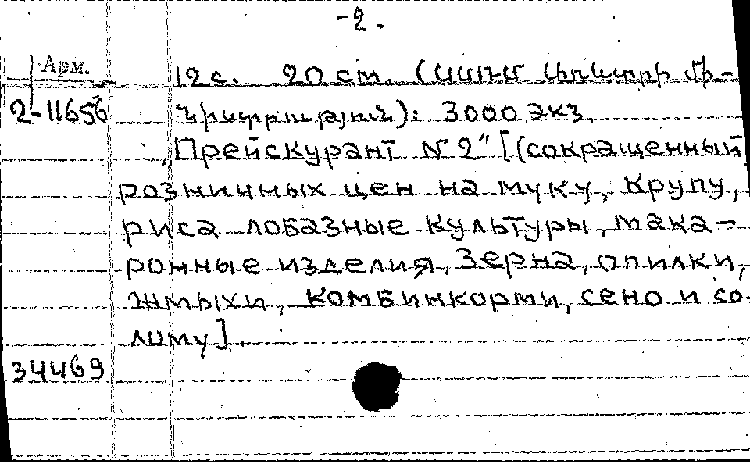 -2.
Арм.
2-11656
12 с. 20 см. (ՍՍՌՄ առևտրի մի-
նիստրություն): 3000 экз.
„Прейскурант №2" [(сокращенный
розничных цен на муку, крупу,
риса лобазные культуры, мака-
ронные изделия, зерна, опилки,
жмыхи, комбинкорми, сено и со
лому].
34469